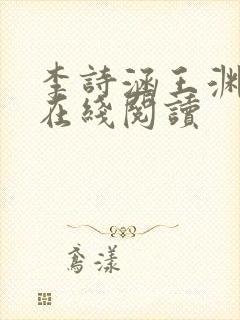 李詩涵王淵
在綫閱讀
鳶漾